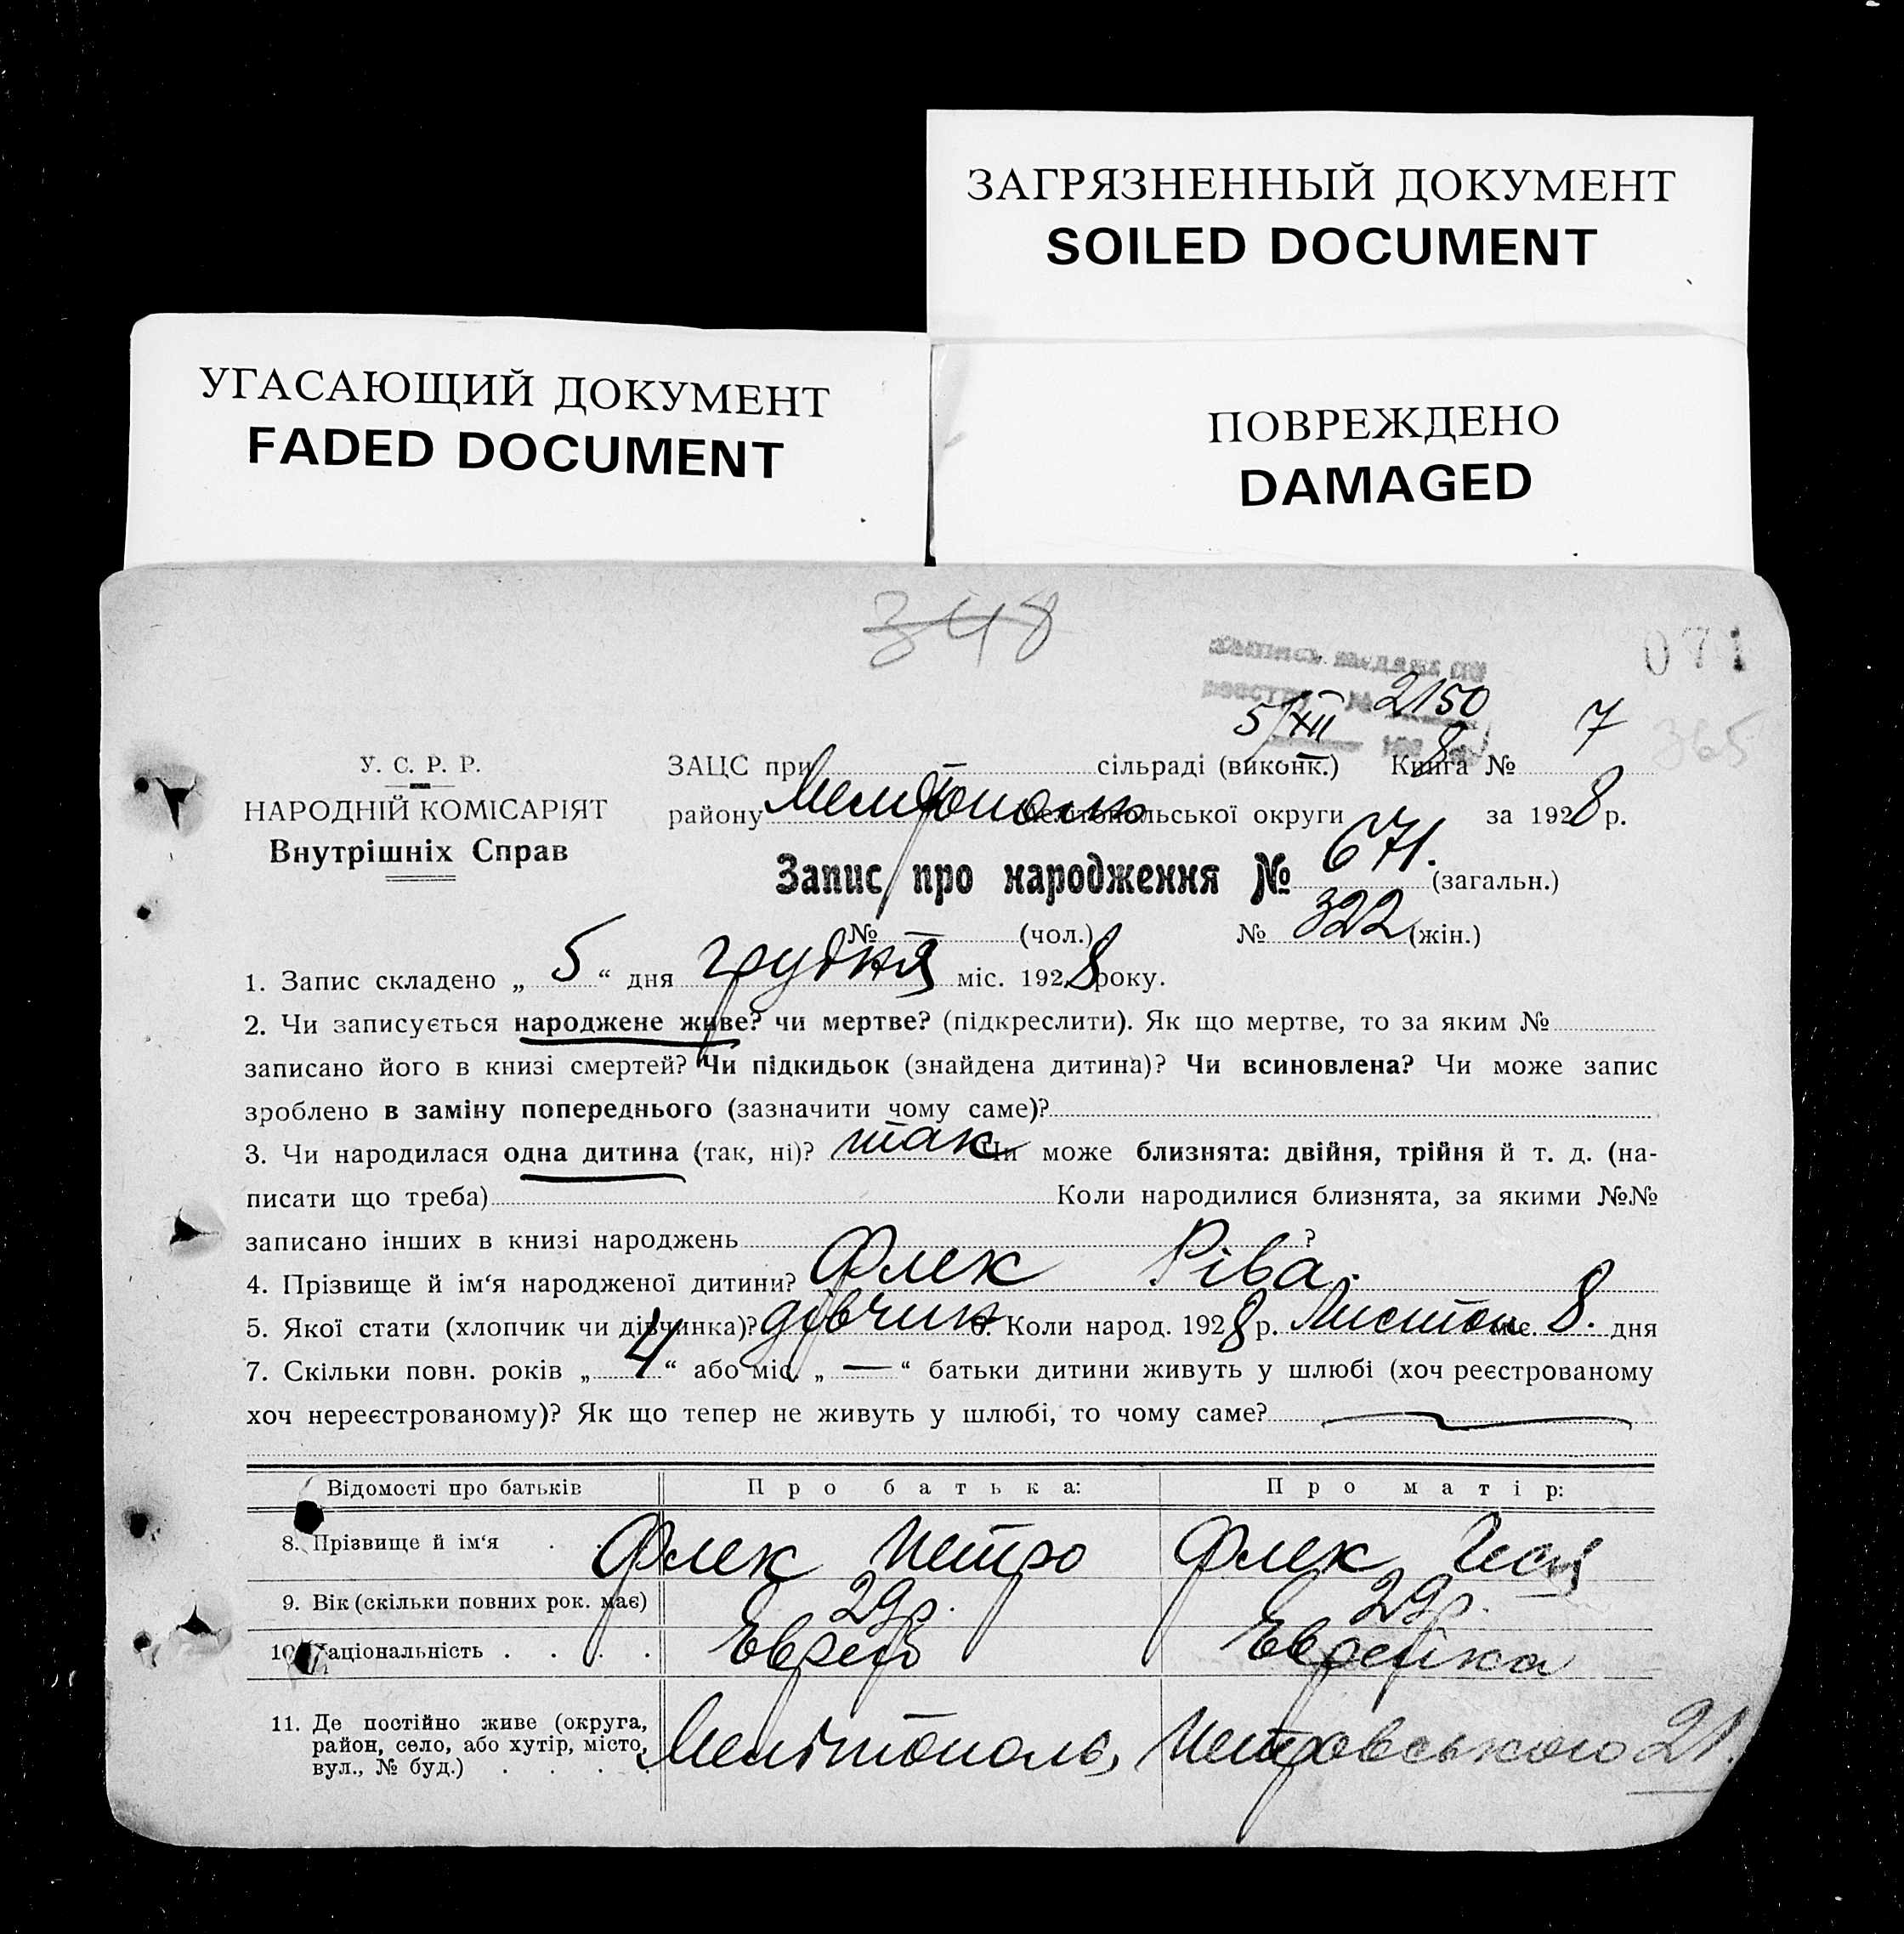 ЗАГРЯЗНЕННЫЙ ДОКУМЕНТ
SOILED DOCUMENT
УГАСАЮЩИЙ ДОКУМЕНТ
FADED DOCUMENT
ПОВРЕЖДЕНО
DAMAGED
348
071
2150
5/XII
365
У. С. Р. Р.
НАРОДНІЙ КОМІСАРІЯТ
Внутрішніх Справ
ЗАЦС при сільраді (виконк.) Книга № 7
району Мелітополь Мелітопольської округи за 1928 р.
Запис про народження № 671. (загальн.)
№ — (чол.) № 322 (жін.)
1. Запис складено „ 5 “ дня грудня міс. 1928 року.
2. Чи записується народжене живе? чи мертве? (підкреслити). Як що мертве, то за яким №
записано його в книзі смертей? Чи підкидьок (знайдена дитина)? Чи всиновлена? Чи може запис
зроблено в заміну попереднього (зазначити чому саме)?
3. Чи народилася одна дитина (так, ні)? так Чи може близнята: двійня, трійня й т. д. (на-
писати що треба) Коли народилися близнята, за якими №№
записано інших в книзі народжень ?
4. Прізвище й ім‘я народженої дитини? Флек Ріва.
5. Якої стати (хлопчик чи дівчинка)? дівчин 6. Коли народ. 1928 р. Листоп міс. 8. дня
7. Скільки повн. років „ 4 “ або міс. „ — “ батьки дитини живуть у шлюбі (хоч реєстрованому
хоч нереєстрованому)? Як що тепер не живуть у шлюбі, то чому саме?
Відомості про батьків Про батька: Про матір:
8. Прізвище й ім‘я . Флек Петро Флек
9. Вік (скільки повних рок. має) 29 р. 29 р.
10. Національність . . . . Еврей Еврейка
11. Де постійно живе (округа,
район, село, або хутір, місто,
вул., № буд.) . . . . Мелітополь, Петровського 21.